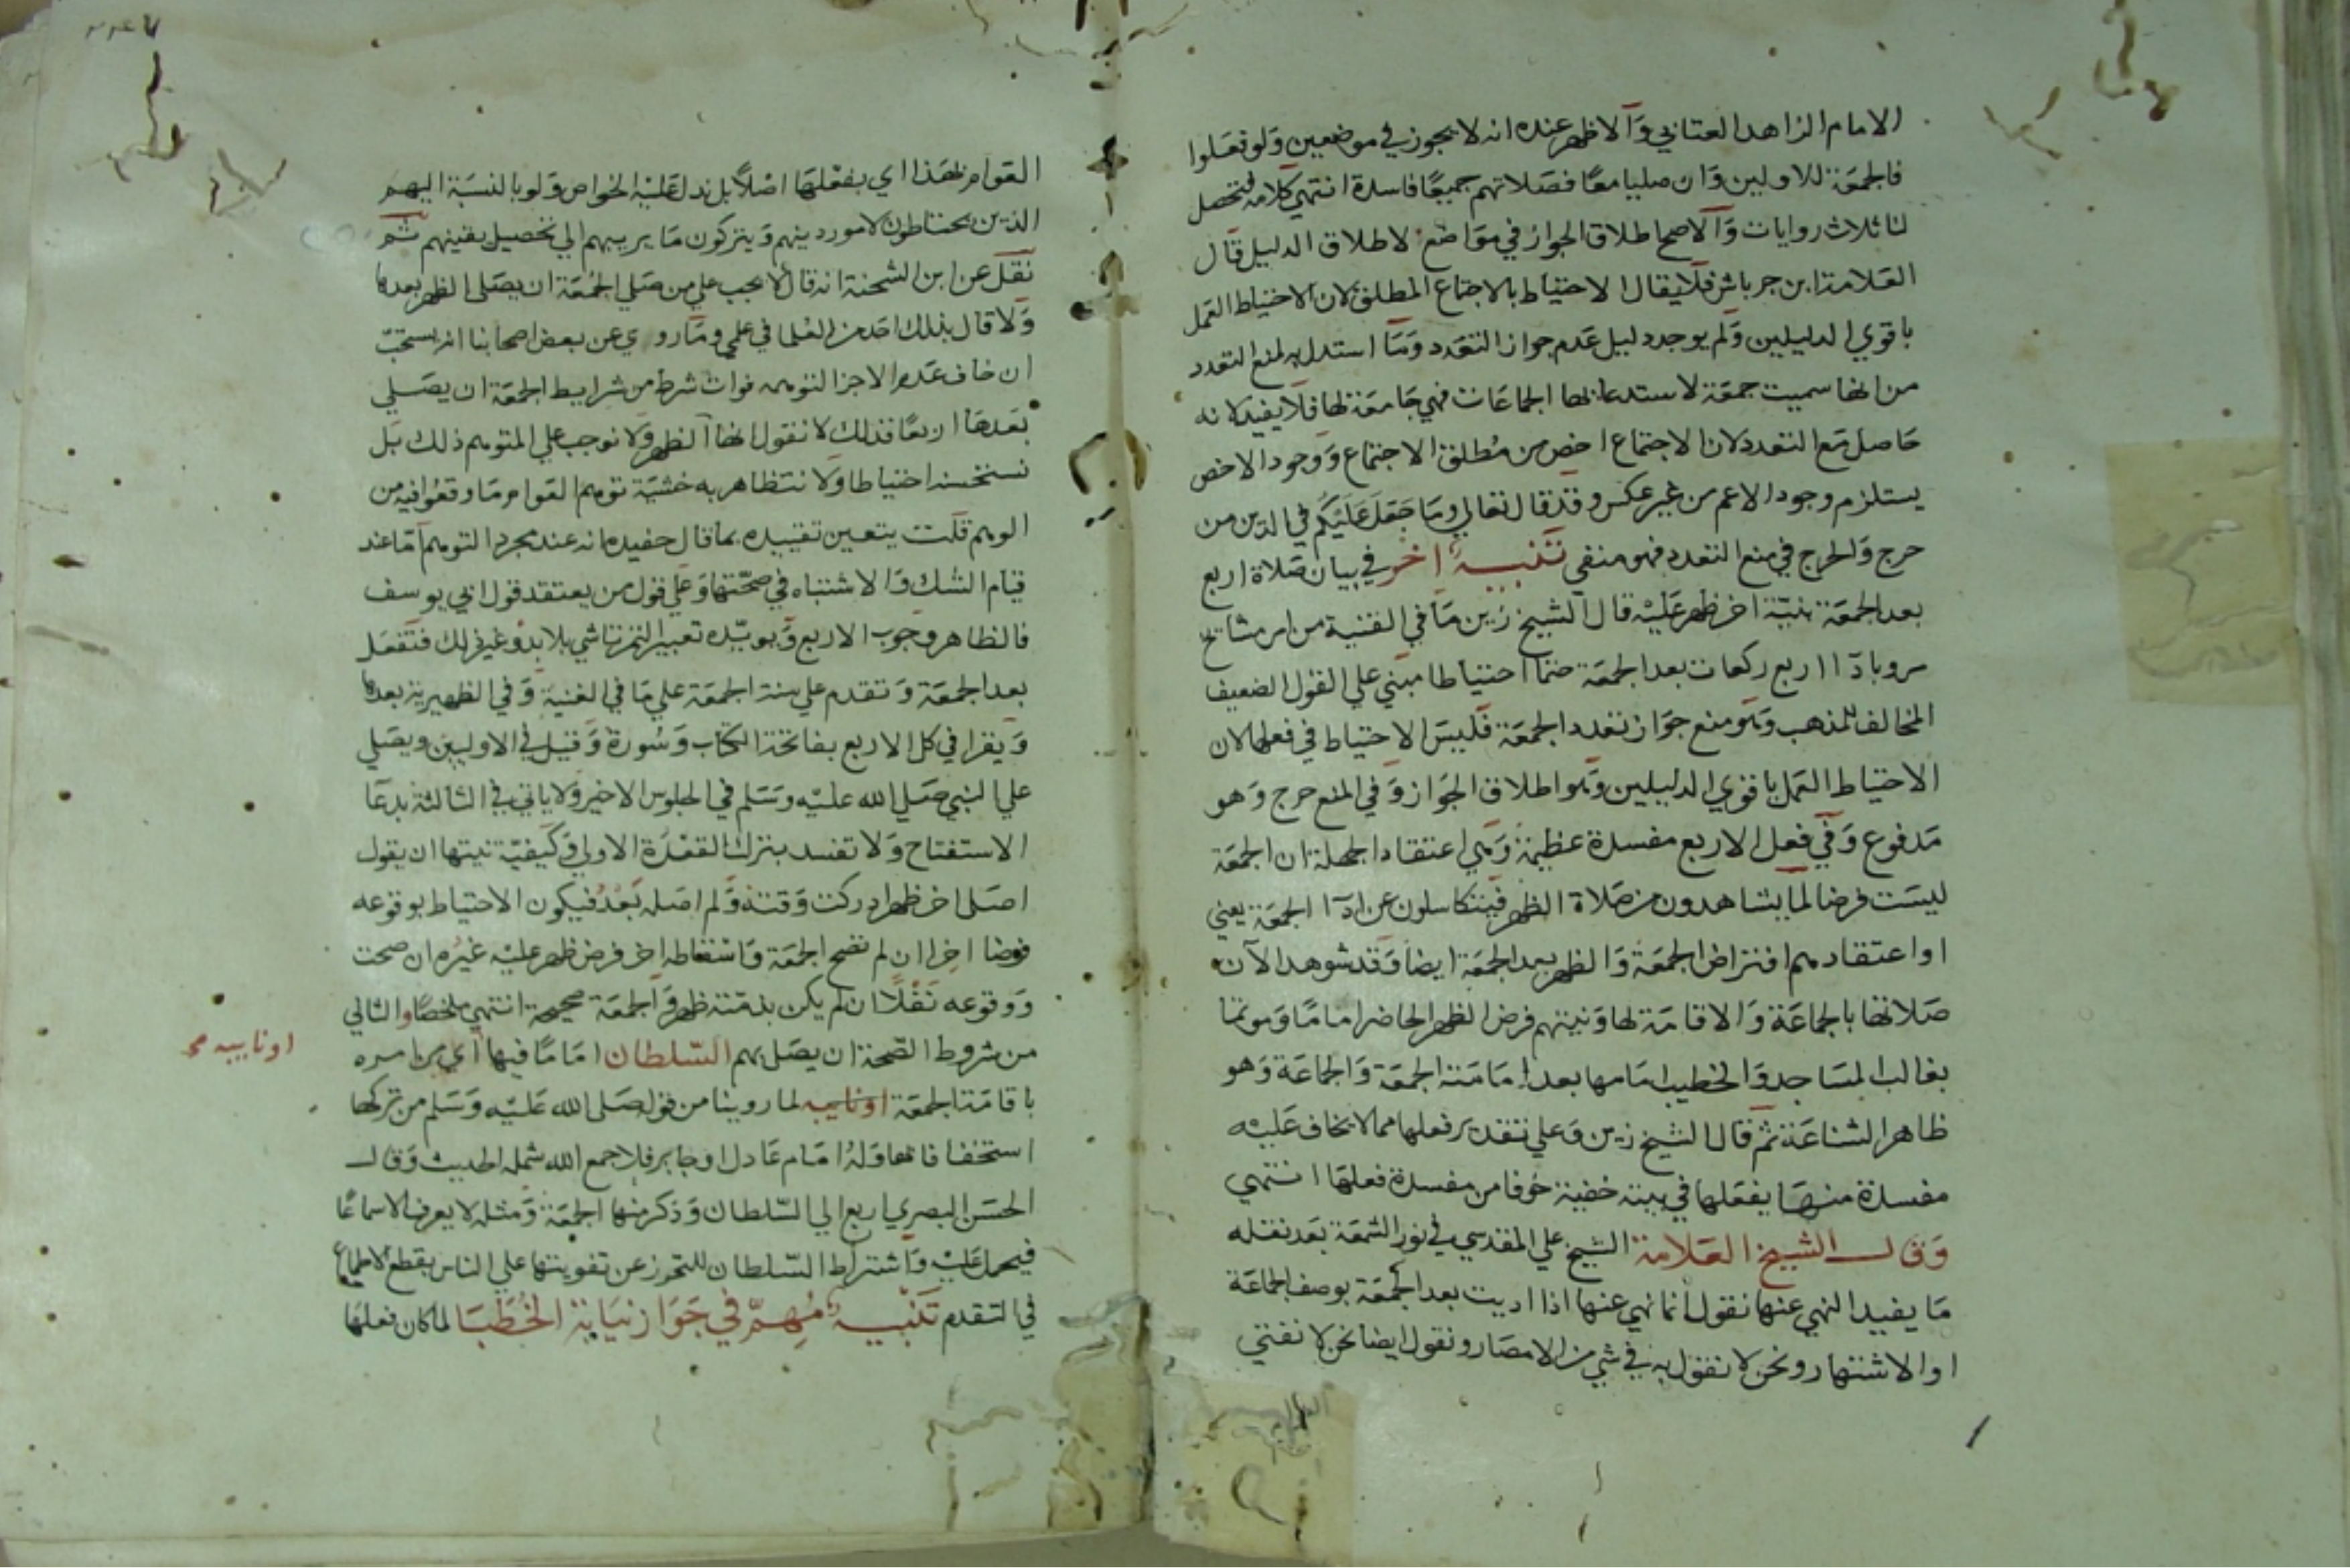 الامام الزاهد العتابي والاظهر عنده انه لا يجوز في موضعين ولو فعلوا
فالجمعة للاولين وان صليا معا فصلاتهم جميعا فاسدة انتهي كلامه فتحصل
لنا ثلاث روايات والاصح اطلاق الجواز في مواضع لاطلاق الدليل قال
العلامة ابن جرباش فلا يقال الاحتياط بالاجتماع المطلق لان الاحتياط العمل
باقوي الدليلين ولم يوجد دليل عدم جواز التعدد وما استدل به لمنع التعدد
من انها سميت جمعة لاستدعائها الجماعات فهي جامعة لها فلا يفيد لانه
حاصل مع التعدد لان الاجتماع اخص من مطلق الاجتماع ووجود الاخص
يستلزم وجود الاعم من غير عكس وقد قال تعالي وما جعل عليكم في الدين من
حرج والحرج في منع التعدد فهو منفي تنبيه اخر في بيان صلاة اربع
بعد الجمعة بنية اخر ظهر عليه قال الشيخ زين ما في القنية من امر مشايخ
مرو باداء اربع ركعات بعد الجمعة حتما احتياطا مبني علي القول الضعيف
المخالف للمذهب وهو منع جواز تعدد الجمعة فليس الاحتياط في فعلها لان
الاحتياط العمل باقوي الدليلين وهو اطلاق الجواز وفي المنع حرج وهو
مدفوع وفي فعل الاربع مفسدة عظيمة وهي اعتقاد الجهلة ان الجمعة
ليست فرضا لما يشاهدون من صلاة الظهر فيتكاسلون عن اداء الجمعة يعني
او اعتقادهم افتراض الجمعة والظهر بعد الجمعة ايضا وقد شوهد الآن
صلاتها بالجماعة والاقامة لها ونيتهم فرض الظهر الحاضر اماما وموتما
بغالب المساجد والخطيب امامها بعد امامته الجمعة والجماعة وهو
ظاهر الشناعة ثم قال الشيخ زين وعلي تقدير فعلها ممن لا يخاف عليه
مفسدة منها يفعلها في بيته خفية خوفا من مفسدة فعلها انتهي
وقال الشيخ العلامة الشيخ علي المقدسي في نور الشمعة بعد نقله
ما يفيد النهي عنها نقول انما نهي عنها اذا اديت بعد الجمعة بوصف الجماعة
او الاشتهار ونحن لا نقول به في شي من الامصار ونقول ايضا نحن لا نفتي
العوام بهذا اي بفعلها اصلا بل ندل عليه الخواص ولو بالنسبة اليهم
الذين يحتاطون لامور دينهم ويتركون ما يريبهم الي تحصيل يقينهم ثم
نقل عن ابن الشحنة انه قال لا يجب علي من صلي الجمعة ان يصلي الظهر بعدها
ولا قال بذلك احد من العلما في علمي وما روي عن بعض اصحابنا انه يستحب
ان خاف عدم الاجزا لتوهم فوات شرط من شرايط الجمعة ان يصلي
بعدها اربعا فذلك لا نقول انها الظهر ولا نوجب علي المتوهم ذلك بل
نستحسنه احتياطا ولا نتظاهر به خشية توهم العوام ما وقعوا فيه من
الوهم قلت يتعين تقييده بما قال حفيده انه عند مجرد التوهم اما عند
قيام الشك والاشتباه في صحتها وعلي قول من يعتقد قول ابي يوسف
فالظاهر وجوب الاربع ويويده تعبير التمرتاشي بلا بد وغير ذلك فتفعل
بعد الجمعة وتقدم علي سنة الجمعة علي ما في الغنية وفي الظهيرية بعدها
ويقرا في كل الاربع بفاتحة الكتاب وسورة وقيل في الاوليين ويصلي
علي النبي صلي الله عليه وسلم في الجلوس الاخير ولا ياتي في الثالثة بدعا
الاستفتاح ولا تفسد بترك القعدة الاولي وكيفية نيتها ان يقول
اصلي اخر ظهر ادركت وقته ولم اصله بعد فيكون الاحتياط بوقوعه
فرضا اخرا ان لم تصح الجمعة واسقاطه اخر فرض ظهر عليه غيره ان صحت
ووقوعه نفلا ان لم يكن بذمته ظهر والجمعة صحيحة انتهي ملخصا والثاني
من شروط الصحة ان يصلي بهم السلطان اماما فيها اي من امره
باقامة الجمعة او نايبه لما روينا من قوله صلي الله عليه وسلم من تركها
استخفافا بها وله امام عادل او جاير فلا جمع الله شمله الحديث وقال
الحسن البصري اربع الي السلطان وذكر منها الجمعة ومثله لا يعرف الا سماعا
فيحمل عليه واشتراط السلطان للتحرز عن تفويتها علي الناس بقطع الاطماع
في التقدم تنبيه مهم في جواز نيابة الخطبا لما كان فعلها
او نايبه